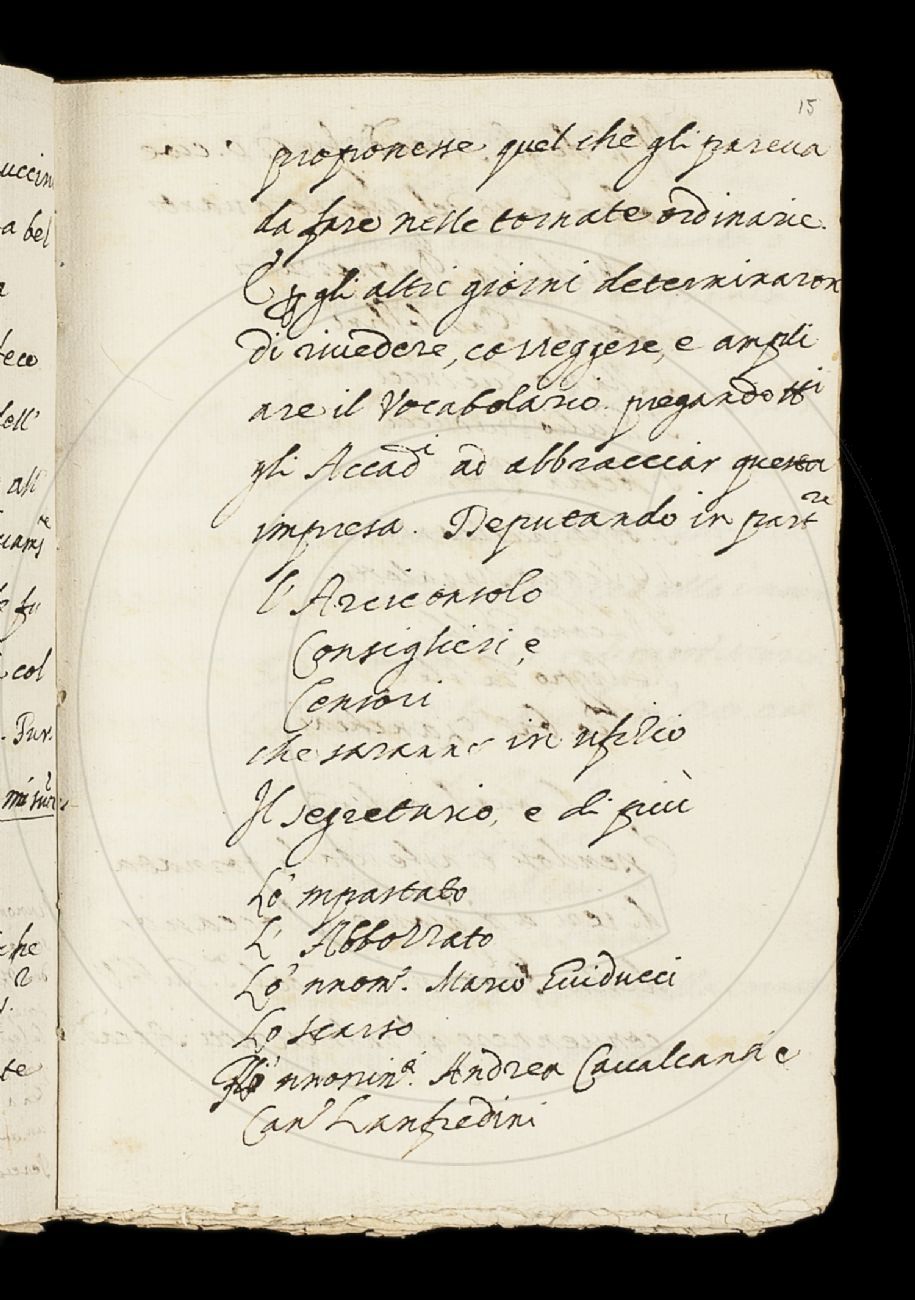 15
proponesse quel che gli pareua
da fare nelle tornate ordinarie.
E p gli altri giorni determinaron
di riuedere, correggere, e ampli
are il Vocabolario. pregando tti
gli Accadi ad abbracciar questa
impresa. Deputando in partre
l' Arciconsolo
Consiglieri, e
Censori
che saranno in ufizio
Il segretario, e di più
Lo 'mpastato
L' Abbozzato
Lo 'nnomo. Mario Guiducci
Lo scarso
Gl' innominati. Andrea Caualcanti e
Can. Lanfredini
uccin
a bel
teco
dell'
all'
uamte
e fu
col
misur
che
te